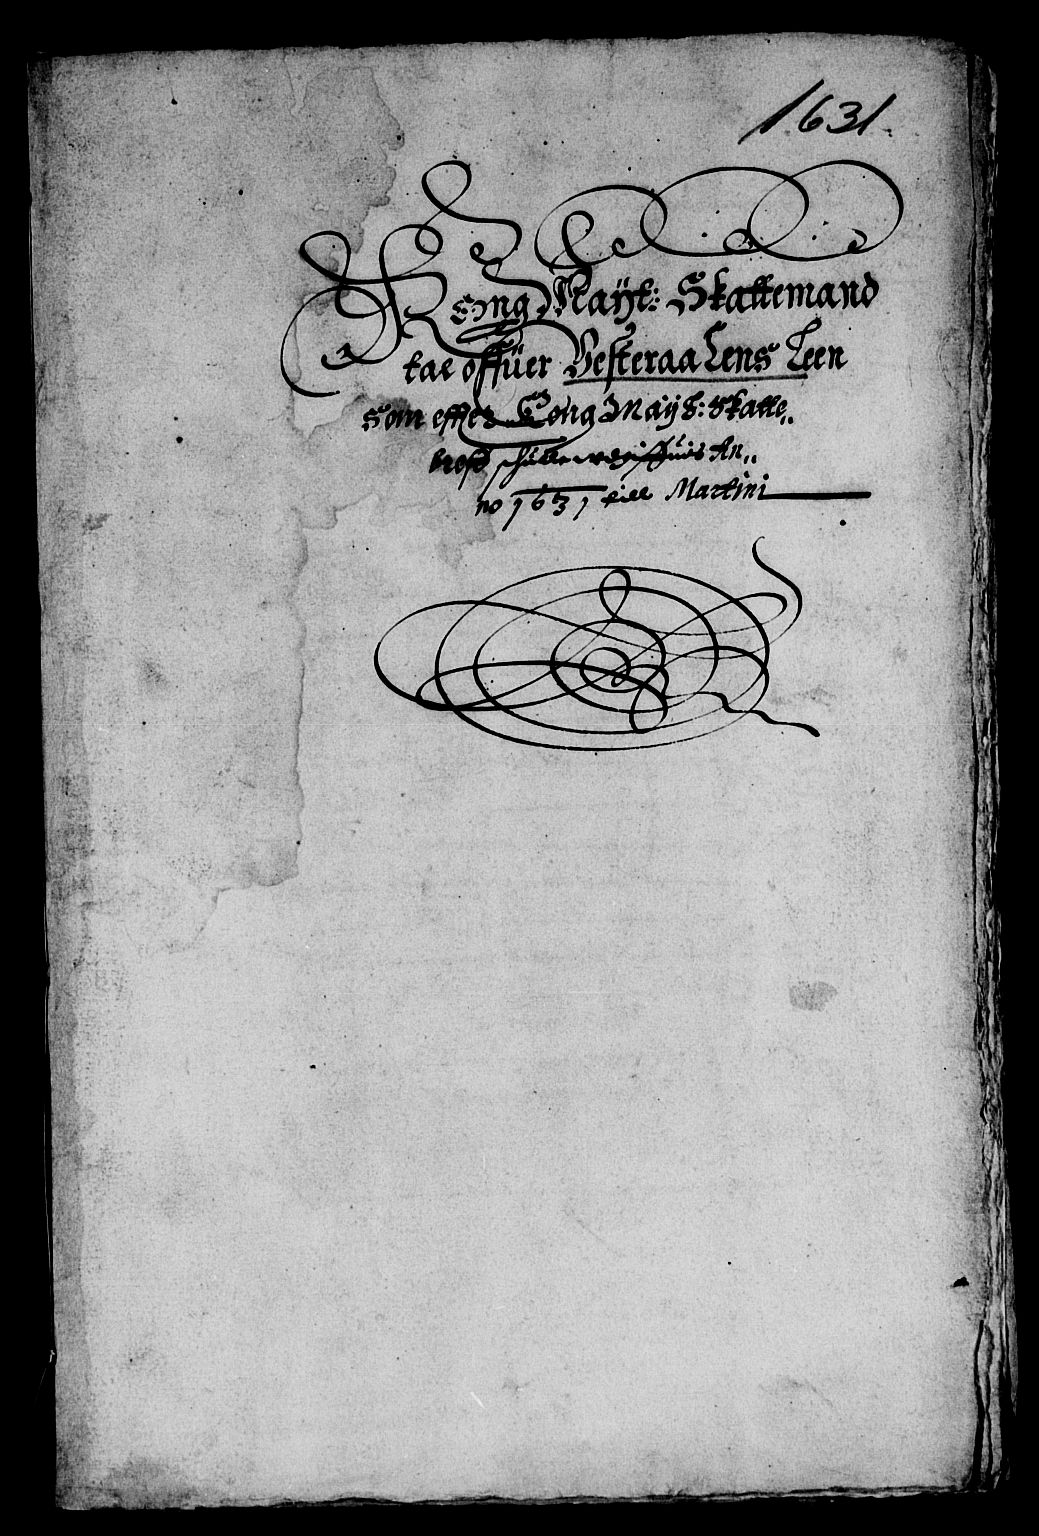 1631.
Kong Mayt: Skattemand
tal offüer Vesteraalens Leen
som effter Kong Mayt: Skatte„
breff An„
no 1631 till Martini